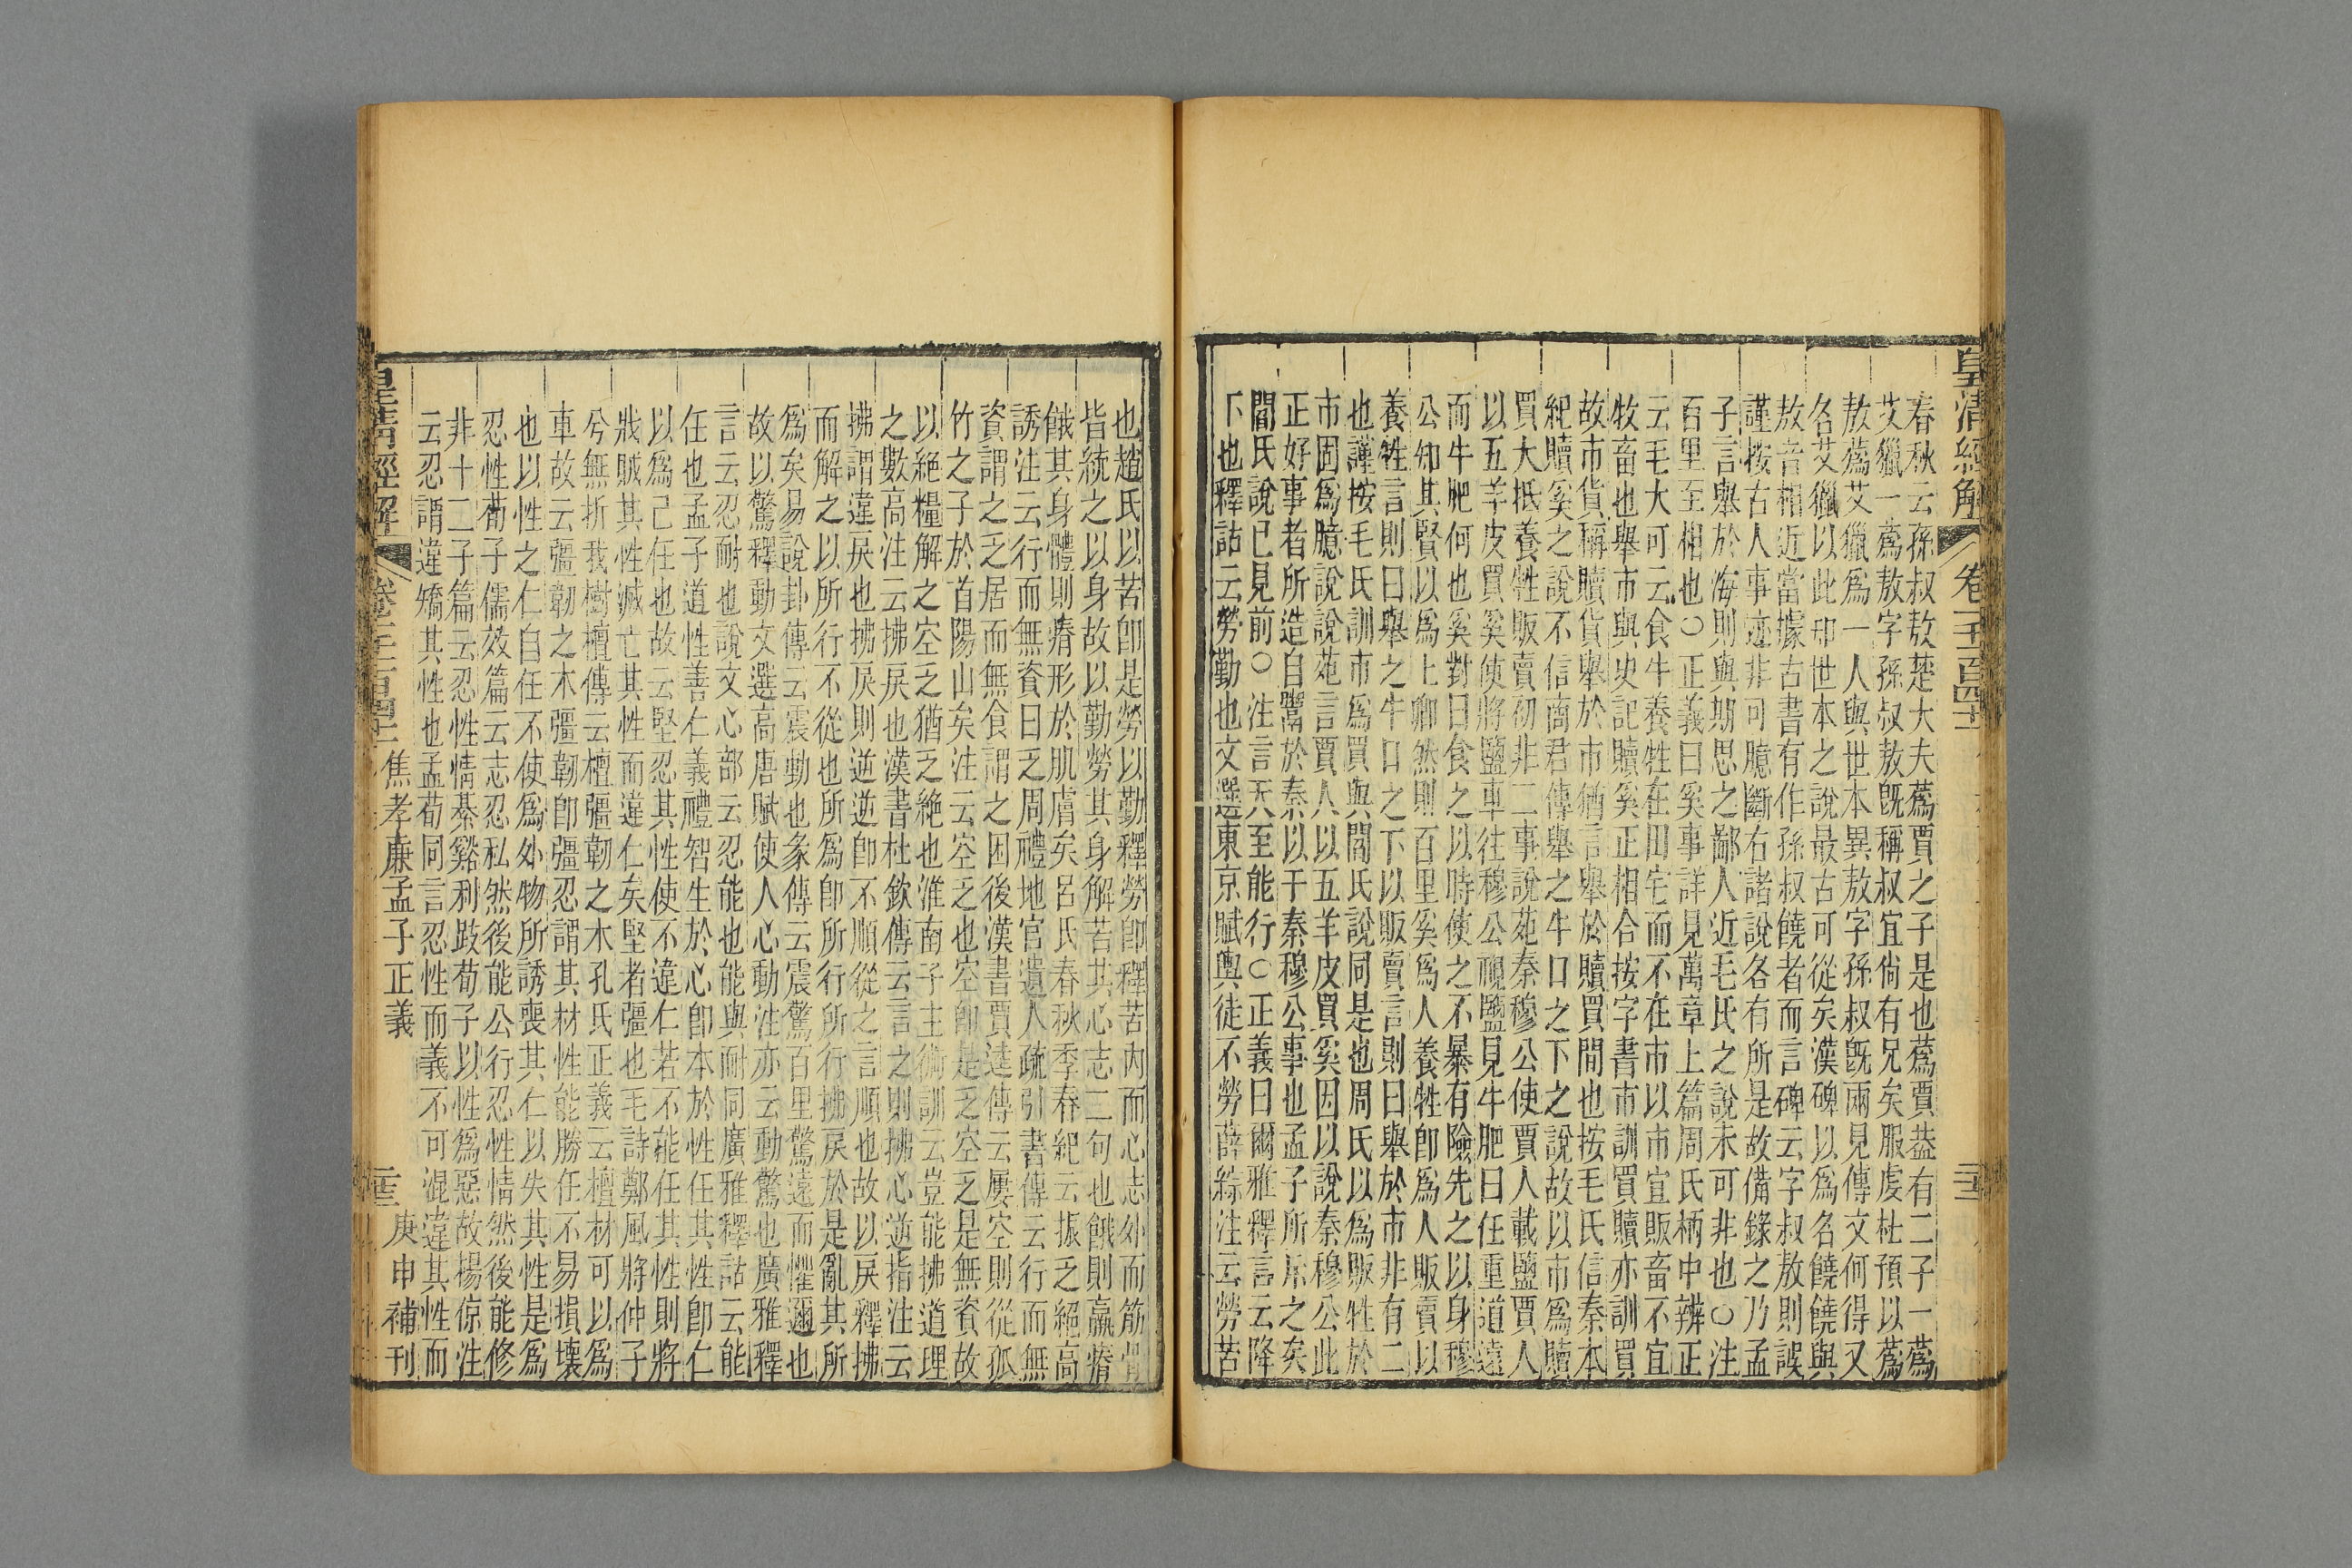 皇清經解
春秋云孫叔敖楚大夫蔿賈之子是也蔿賈葢有二子一蔿
艾獵一爲敖字孫叔敖旣稱叔宜尙有兄矣服虔杜預以蔿
敖蔿艾獵爲一人與世本異敖字孫叔旣兩見傳文何得又
名艾獵以此却世本之說最古可從矣漢碑以爲名饒饒與
敖音相近當據古書有作孫叔饒者而言碑云字叔敖則誤
謹按古人事迹非可臆斷右諸說各有所是故備錄之乃孟
子言舉於海則與期思之鄙人近毛氏之說未可非也○注
百里至相也○正義曰奚事詳見萬章上篇周氏柄中辨正
云毛大可云食牛養牲在田宅而不在市以市宜販畜不宜
牧畜也舉市與史記贖奚正相合按字書市訓買贖亦訓買
故市貨稱贖貨舉於市猶言舉於贖買閒也按毛氏信秦本
紀贖奚之說不信商君傳舉之牛口之下之說故以市爲贖
買大抵養牲販賣初非二事說苑秦穆公使賈人載鹽賈人
以五羊皮買奚使將鹽車往穆公視鹽見牛肥曰任重道遠
而牛肥何也奚對曰食之以時使之不暴有險先之以身穆
公知其賢以爲上卿然則百里奚爲人養牲卽爲人販賣以
養牲言則曰舉之牛口之下以販賣言則曰舉於市非有二
也謹按毛氏訓市爲買與閻氏說同是也周氏以爲販牲於
市固爲臆說說苑言賈人以五羊皮買奚因以說秦穆公此
正好事者所造自鬻於秦以干秦穆公事也孟子所斥之矣
閻氏說已見前○注言天至能行○正義曰爾雅釋言云降
下也釋詁云勞勤也文選東京賦輿徒不勞薛綜注云勞苦
也趙氏以苦卽是勞以勤釋勞卽釋苦內而心志外而筋骨
皆統之以身故以勤勞其身解苦其心志二句也餓則羸瘠
餓其身體則瘠形於肌膚矣呂氏春秋季春紀云振乏絕高
誘注云行而無資曰乏周禮地官遺人疏引書傳云行而無
資謂之乏居而無食謂之困後漢書賈逵傳云屢空則從孤
竹之子於首陽山矣注云空乏也空卽是乏空乏是無資故
以絕糧解之空乏猶乏絕也淮南子主術訓云豈能拂道理
之數高注云拂戾也漢書杜欽傳云言之則拂心逆指注云
拂謂違戾也拂戾則逆逆卽不順從之言順也故以戾釋拂
而解之以所行不從也所爲卽所行所行拂戾於是亂其所
爲矣易說卦傳云震動也彖傳云震驚百里驚遠而懼邇也
故以驚釋動文選高唐賦使人心動注亦云動驚也廣雅釋
言云忍耐也說文心部云忍能也能與耐同廣雅釋詁云能
任也孟子道性善仁義禮智生於心卽本於性任其性卽仁
以爲己任也故云堅忍其性使不違仁若不能任其性則將
戕賊其性滅亡其性而違仁矣堅者彊也毛詩鄭風將仲子
兮無折我樹檀傳云檀彊韌之木孔氏正義云檀材可以爲
車故云彊韌之木彊韌卽彊忍謂其材性能勝任不易損壞
也以性之仁自任不使爲外物所誘喪其仁以失其性是爲
忍性荀子儒效篇云志忍私然後能公行忍性情然後能修
非十二子篇云忍性情綦谿利跂荀子以性爲惡故楊倞注
云忍謂違矯其性也孟荀同言忍性而義不可混違其性而
皇清經解
焦孝廉孟子正義
庚申補刊